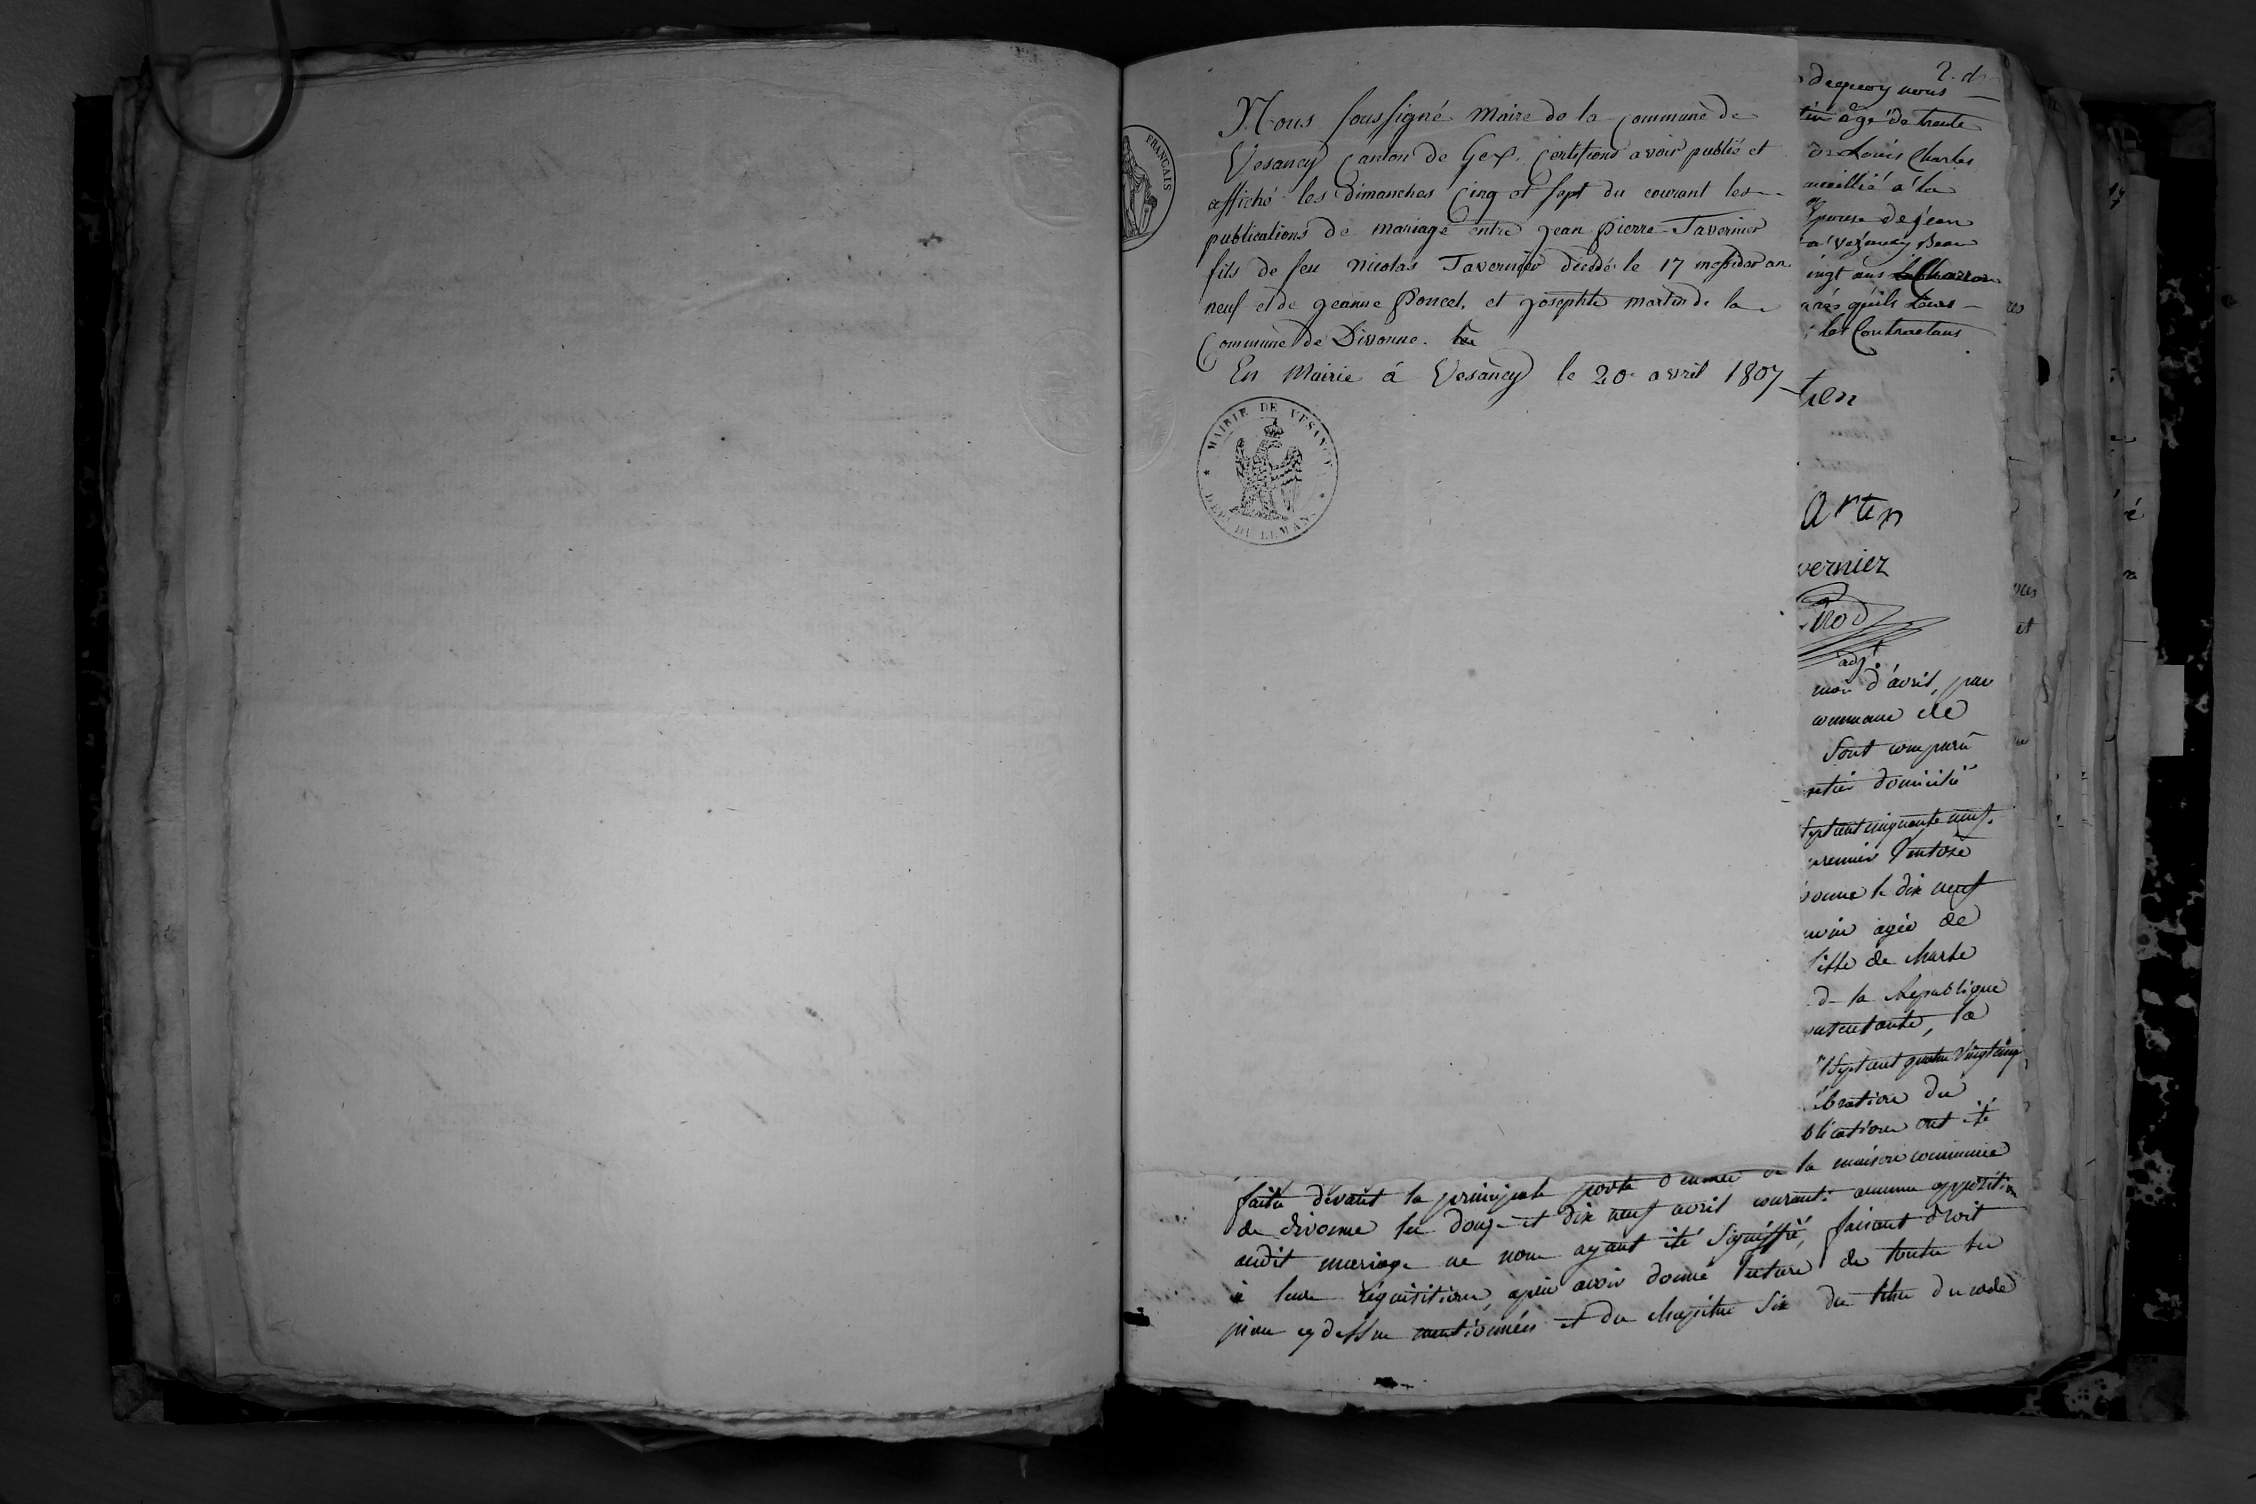 FRANÇAIS
Nous soussigné Maire de la commune de
Vesancy canton de Gex. Certifions avoir publié et
affiché les dimanches cinq et sept du courant les
publications de mariage entre jean pierre Tavernier
fils de feu Nicolas Tavernier décédé le 17 messidor an
neuf et de jeanne Poncet. et josephte martin de la
Commune de Divonne.
En Mairie á Vesancy le 20 avril 1807
MAIRIE DE VESANCY
DEPT. DU LEMAN
dequoy nous
tin âgé de trente
Louis Charles
la
épouse de jean
ingt ans
qu'ils
les Contractans
tien
artin
vernier
rod
adjt
mois d'avril, par
commune de
Sont comparu
domicilié
Sept cent cinquante neuf.
premier Ventose
vonne le dix neuf
agée de
fille de
de la République
consentante, la
Sept cent quatre vingt cinq
ébration du
blications ont été
la maison commune
faites devant la principale porte d'entrée de
de divonne les douze et dix neuf avril courant. aucune opposition
audit mariage ne nous ayant été signiffié, faisant droit
à leur réquisition, après avoir donné lecture de toutes les
pieces cy dessus mentionnées et du chapitre Six du titre du code